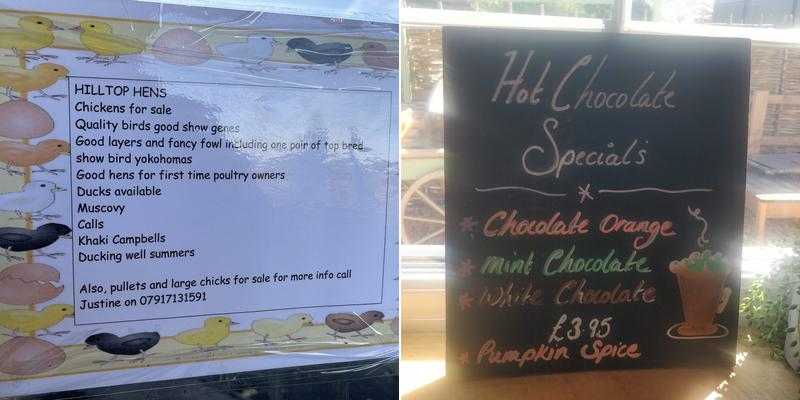 HILLTOP HENS
Chickens for sale
Quality birds good show genes
Good layers and fancy fowl including one pair of top bred
show bird yokohomas
Good hens for first time poultry owners
Ducks available
Muscovy
Calls
Khaki Campbells
Ducking well summers
Also, pullets and large chicks for sale for more info call
Justine on 07917131591
Hot Chocolate
Special's
* Chocolate Orange
* Mint Chocolate
* White Chocolate
£3.95
* Pumpkin Spice